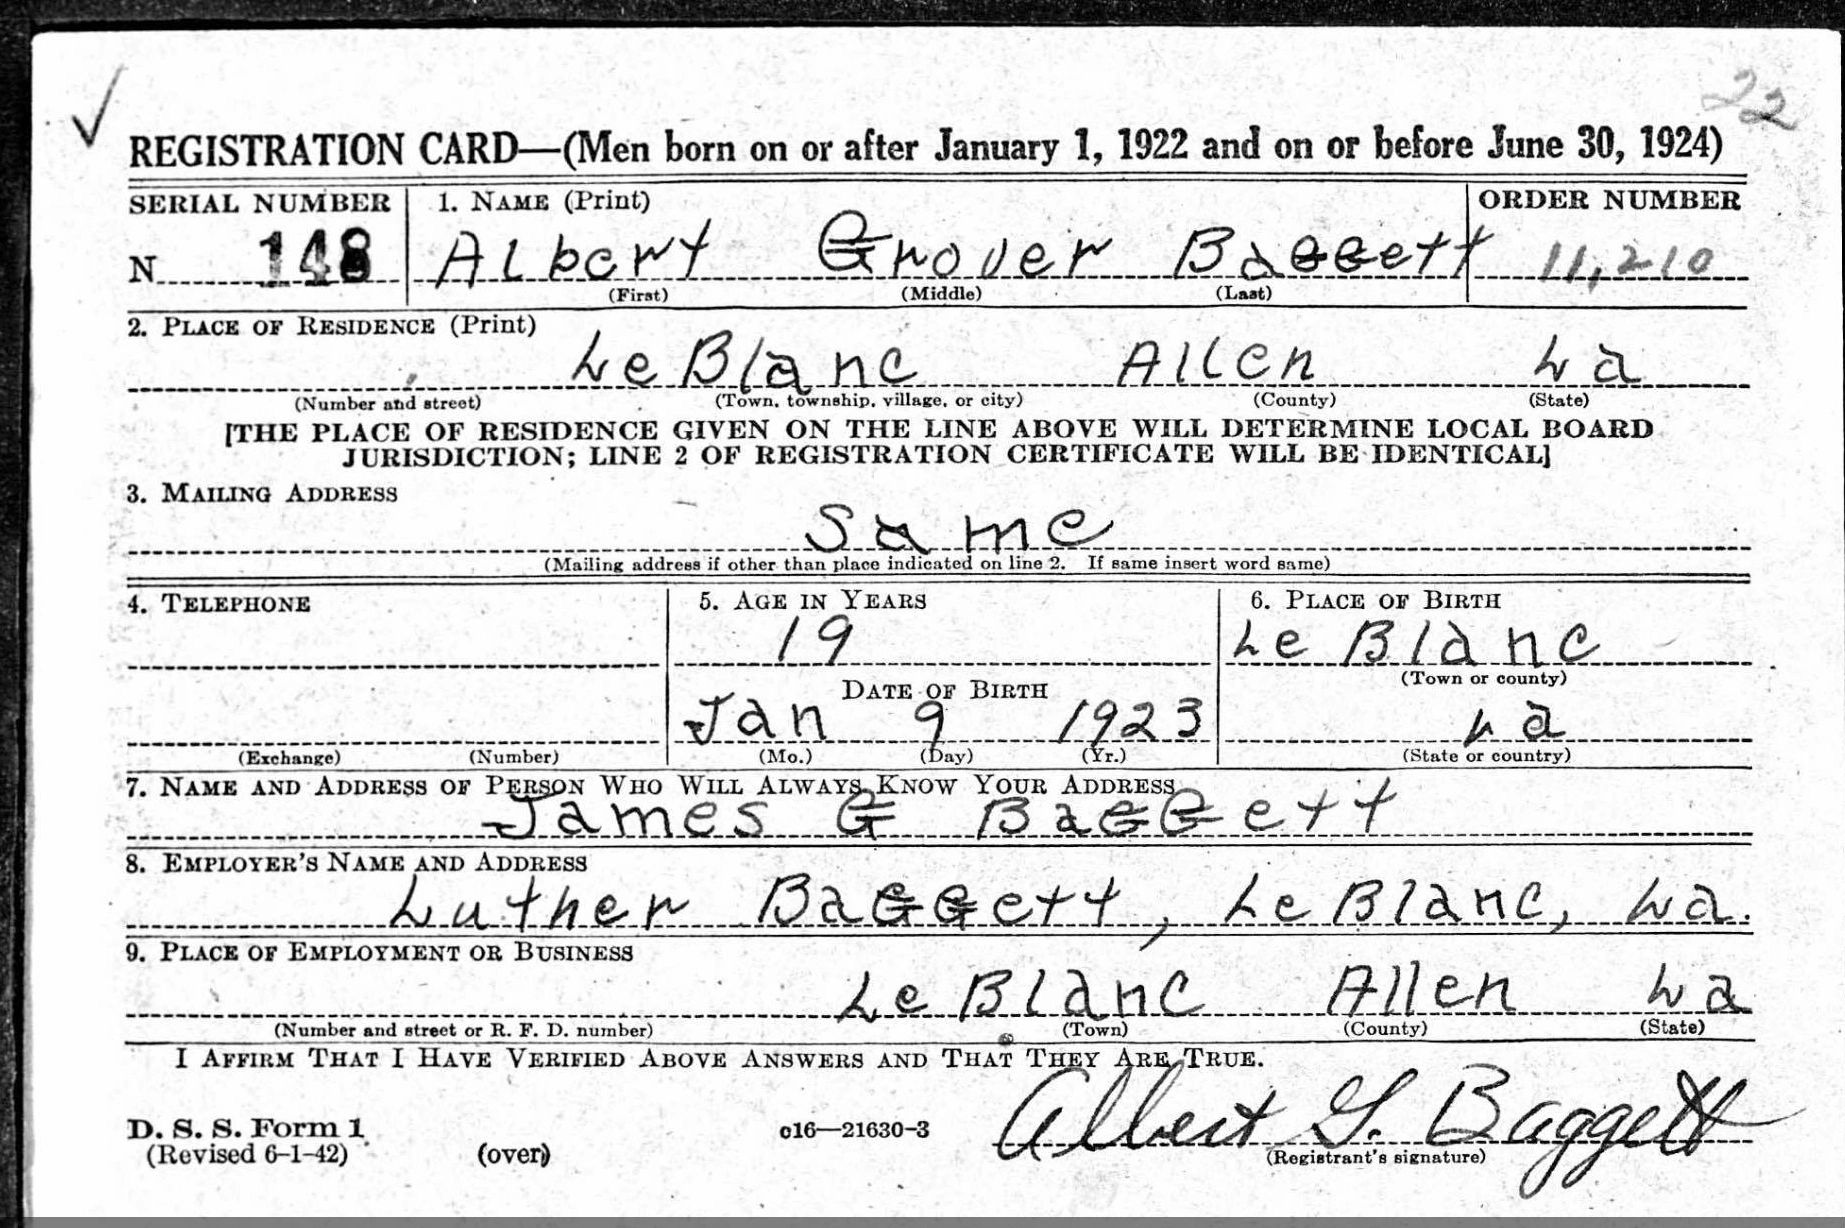 22
REGISTRATION CARD—(Men born on or after January 1, 1922 and on or before June 30, 1924)
SERIAL NUMBER 1. NAME (Print) ORDER NUMBER
N 148 Albert Grover Baggett 11,210
(First) (Middle) (Last)
2. PLACE OF RESIDENCE (Print)
Le Blanc Allen La
(Number and street) (Town, township, village, or city) (County) (State)
[THE PLACE OF RESIDENCE GIVEN ON THE LINE ABOVE WILL DETERMINE LOCAL BOARD
JURISDICTION; LINE 2 OF REGISTRATION CERTIFICATE WILL BE IDENTICAL]
3. MAILING ADDRESS
Same
(Mailing address if other than place indicated on line 2. If same insert word same)
4. TELEPHONE 5. AGE IN YEARS 6. PLACE OF BIRTH
19 Le Blanc
DATE OF BIRTH (Town or county)
Jan 9 1923 La
(Exchange) (Number) (Mo.) (Day) (Yr.) (State or country)
7. NAME AND ADDRESS OF PERSON WHO WILL ALWAYS KNOW YOUR ADDRESS
James G Baggett
8. EMPLOYER'S NAME AND ADDRESS
Luther Baggett, Le Blanc, La.
9. PLACE OF EMPLOYMENT OR BUSINESS
Le Blanc Allen La
(Number and street or R. F. D. number) (Town) (County) (State)
I AFFIRM THAT I HAVE VERIFIED ABOVE ANSWERS AND THAT THEY ARE TRUE.
D. S. S. Form 1 c16—21630-3 Albert G. Baggett
(Revised 6-1-42) (over) (Registrant's signature)